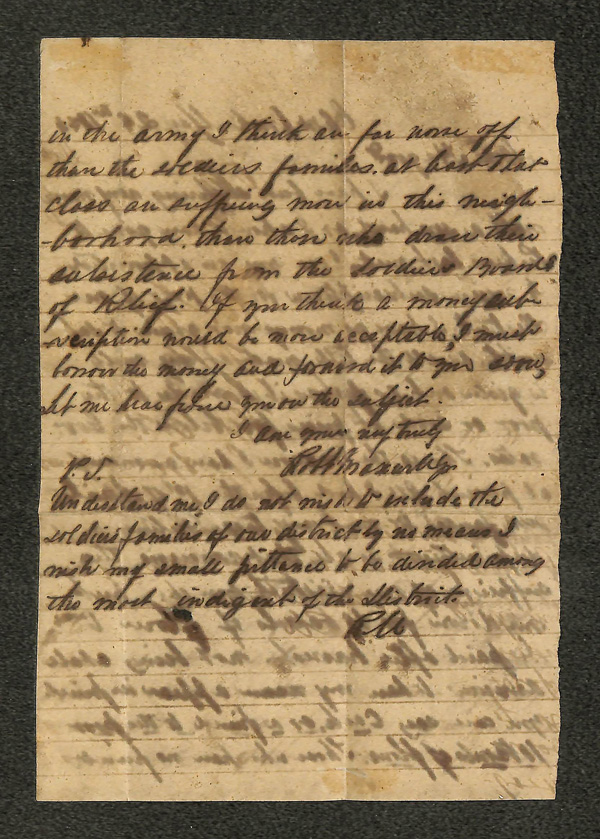 in the army I think are far worse off
than the soldiers families. at least that
class are suffering more in this neigh-
-borhood, than those who draw their
subsistence from the Soldiers Board
of Relief. If you think a money sub
-scription would be more acceptable, I must
borrow the money and forward it to you soon,
let me hear from you on the subject.
I am yours very truly
P.S.
Understand me, I do not wish to exclude the
soldiers families of our district by no means I
wish my small pittance to be divided among
the most indigent of the District.
RM